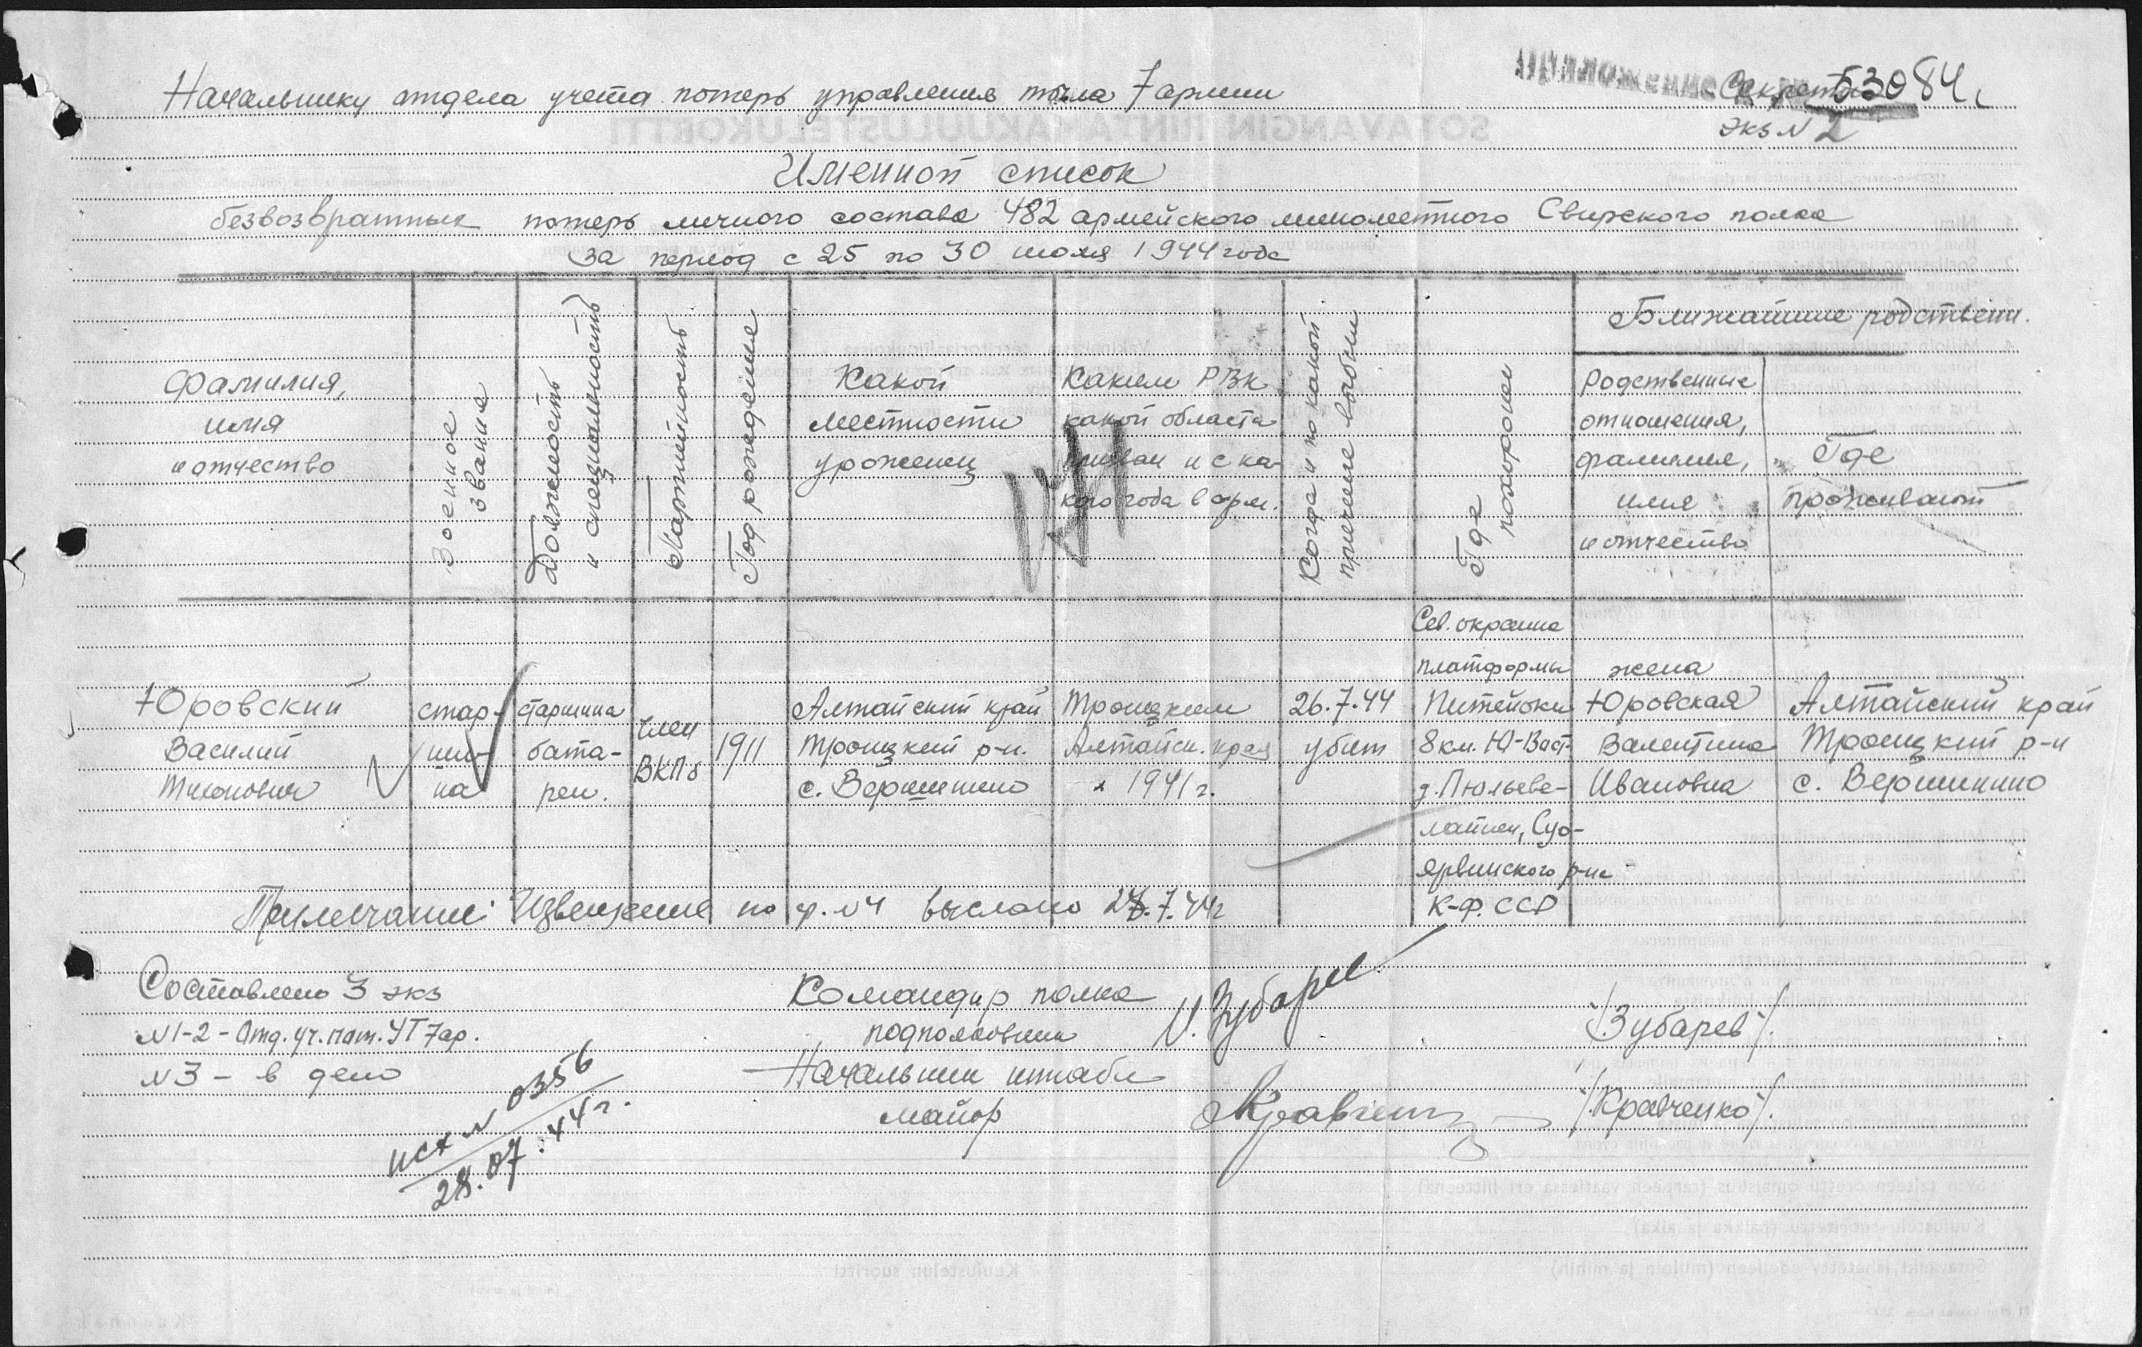 Начальнику отдела учета потерь управления тыла 7 армии
Секретно
53084
экз N 2
Именной список
безвозвратных потерь личного состава 482 армейского минометного Свирского полка
за период с 25 по 30 июля 1944 года
Фамилия,
имя
и отчество
Военное
звание
Должность
и специальность
Партийность
Год рождения
Какой
местности
уроженец
Каким РВК
какой области
призван и с ка-
кого года в арм.
Когда и по какой
причине выбыл
Где
похоронен
Ближайшие родствен.
Родственные
отношения,
фамилия,
имя
и отчество
Где
проживают
Юровский
Василий
Тихонович
стар-
ши-
на
старшина
бата-
реи.
член
ВКПб
1911
Алтайский край
Троицкий р-н.
с. Вершинино
Троицким
Алтайск. края
1941 г.
26.7.44
убит
Сев. окраина
платформы
Питейоки
8 км. Ю-Вост.
д. Люльеве-
латиен, Суо-
ярвинского р-на
К-Ф. ССР
жена
Юровская
Валентина
Ивановна
Алтайский край
Троицкий р-н
с. Вершинино
Примечание: Извещение по ф. N 4 выслано 28.7.44г
Составлено 3 экз
N 1-2 - Отд. уч. пот. УТ 7 ар.
N 3 - в дело
исх N 0356
28.07.44 г.
Командир полка
подполковник
И. Зубарев
/Зубарев/.
Начальник штаба
майор
Кравченко
/Кравченко/.
SOTAVANGIN RINTAMAKUULUSTELUKORTTI